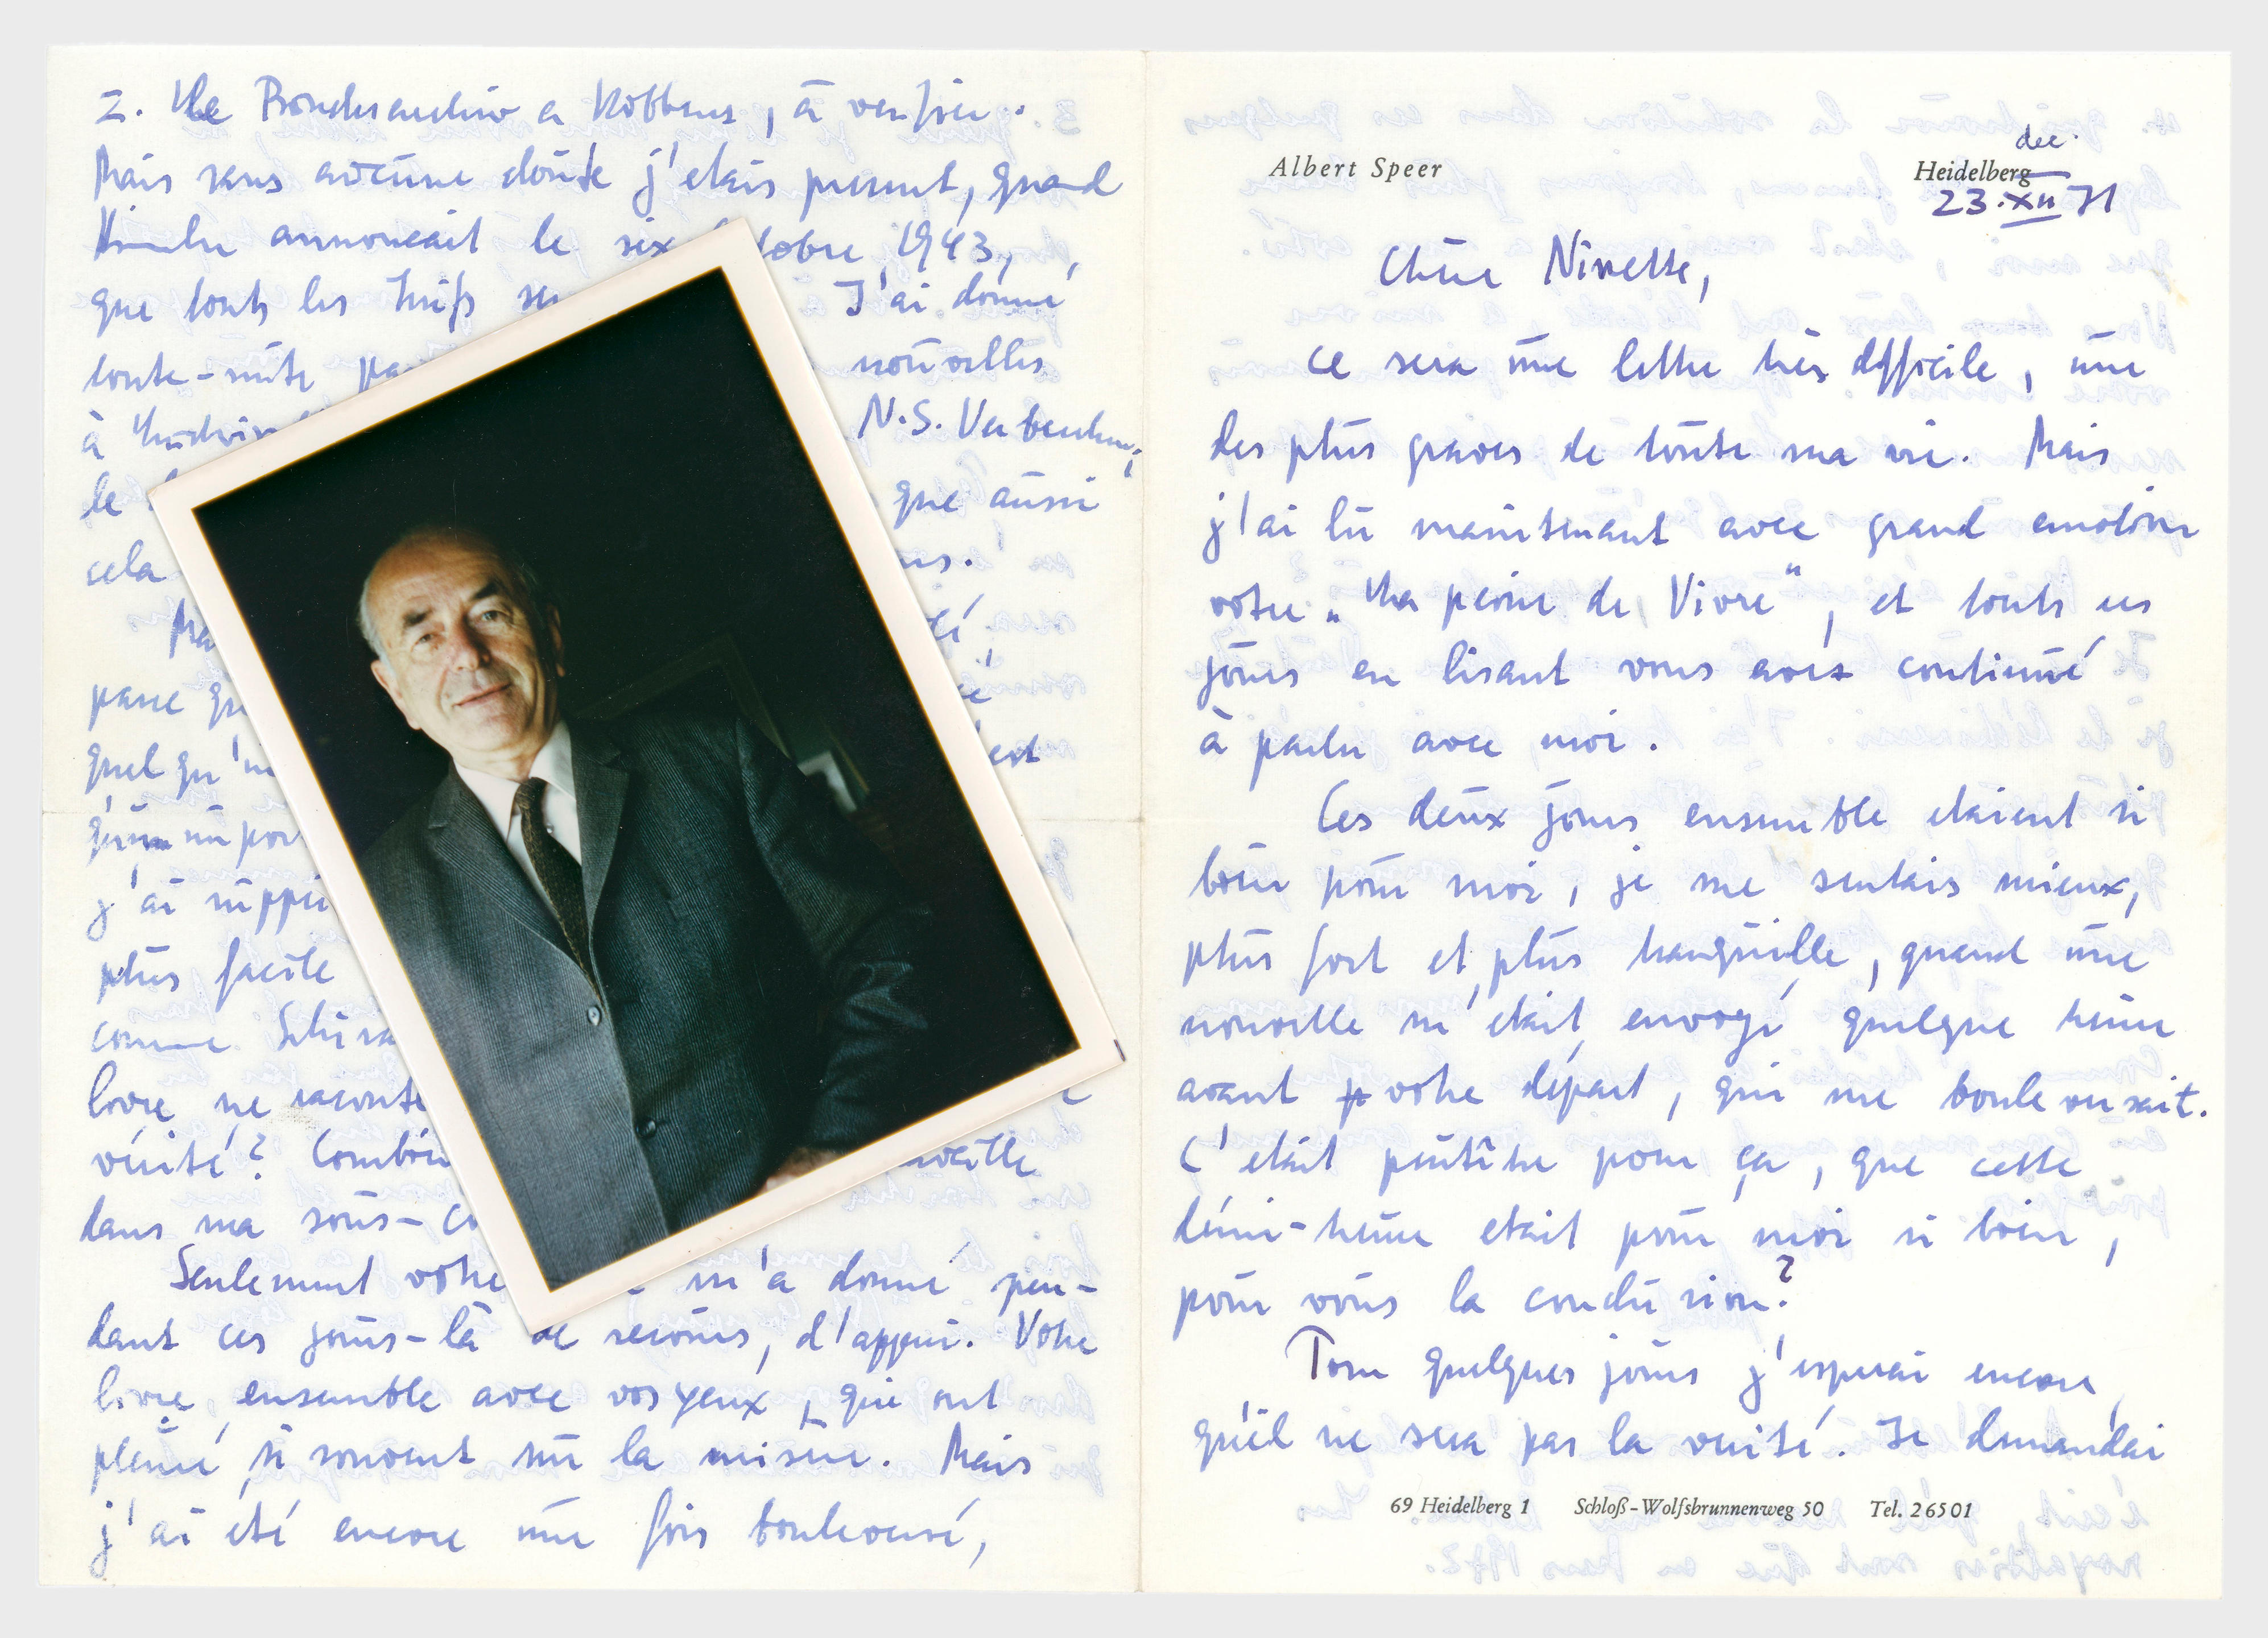 Albert Speer
dec.
Heidelberg
23.XII 71
Chère Ninette,
ce sera une lettre très difficile, une
des plus graves de toute ma vie. Mais
j'ai lu maintenant avec grand emotion
votre „Ma peine de Vivre“, et touts ces
jours en lisant vous avez continué
à parler avec moi.
Ces deux jours ensemble etaient si
bien pour moi, je me sentais mieux,
plus fort et plus tranquille, quand une
nouvelle m'etait envoyé quelque heure
avant votre départ, qui me bouleversait.
C'etait peutêtre pour ça, que cette
demi-heure etait pour moi si bien,
pour vous la conclusion?
Pour quelques jours j'esperai encore,
qu'il ne sera pas la verité. Je demandai
69 Heidelberg 1 Schloß-Wolfsbrunnenweg 50 Tel. 26501
2. le Bundesarchiv a Koblenz, à verifier.
Mais sans aucune doute j'etais present, quand
Himmler annoncait le six 1943,
que touts les Juifs J'ai donné
toute-suite nouvelles
à N.S. Verbrechen,
le que aussi
cela
parce
quelqu'un
j'ai
plus facile
comme
livre, ne raconte
vérité? Combien
dans ma sous-
Seulement votre m'a donné pen-
dant ces jours-là de secours, d'appui. Votre
livre, ensemble avec vos yeux, qui ont
pleuré si souvent sur la misère. Mais
j'ai été encore une fois bouleversé,